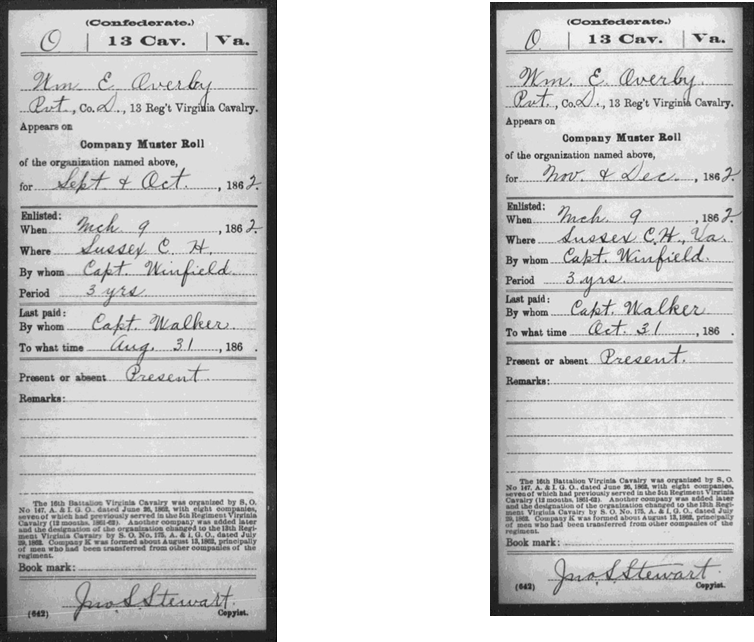 (Confederate.)
O | 13 Cav. | Va.
Wm E Overby
Pvt., Co. D., 13 Reg't Virginia Cavalry.
Appears on
Company Muster Roll
of the organization named above,
for Sept & Oct., 1862.
Enlisted:
When Mch 9, 1862.
Where Sussex C. H.
By whom Capt. Winfield.
Period 3 yrs
Last paid:
By whom Capt. Walker.
To what time Aug. 31, 186 .
Present or absent Present.
Remarks:
The 16th Battalion Virginia Cavalry was organized by S. O.
No 147, A. & I. G. O., dated June 26, 1862, with eight companies,
seven of which had previously served in the 5th Regiment Virginia
Cavalry (12 months, 1861-62). Another company was added later
and the designation of the organization changed to the 13th Regi-
ment Virginia Cavalry by S. O. No. 175, A. & I. G. O., dated July
29, 1862. Company K was formed about August 13, 1862, principally
of men who had been transferred from other companies of the
regiment.
Book mark:
Jno. S. Stewart.
(642) Copyist.
(Confederate.)
O. | 13 Cav. | Va.
Wm. E Overby.
Pvt., Co. D., 13 Reg't Virginia Cavalry.
Appears on
Company Muster Roll
of the organization named above,
for Nov. & Dec., 1862
Enlisted:
When Mch. 9, 1862
Where Sussex C.H., Va.
By whom Capt. Winfield.
Period 3 yrs.
Last paid:
By whom Capt. Walker
To what time Oct. 31, 186 .
Present or absent Present.
Remarks:
The 16th Battalion Virginia Cavalry was organized by S. O.
No 147, A. & I. G. O., dated June 26, 1862, with eight companies,
seven of which had previously served in the 5th Regiment Virginia
Cavalry (12 months, 1861-62). Another company was added later
and the designation of the organization changed to the 13th Regi-
ment Virginia Cavalry by S. O. No. 175, A. & I. G. O., dated July
29, 1862. Company K was formed about August 13, 1862, principally
of men who had been transferred from other companies of the
regiment.
Book mark:
Jno. S. Stewart.
(642) Copyist.